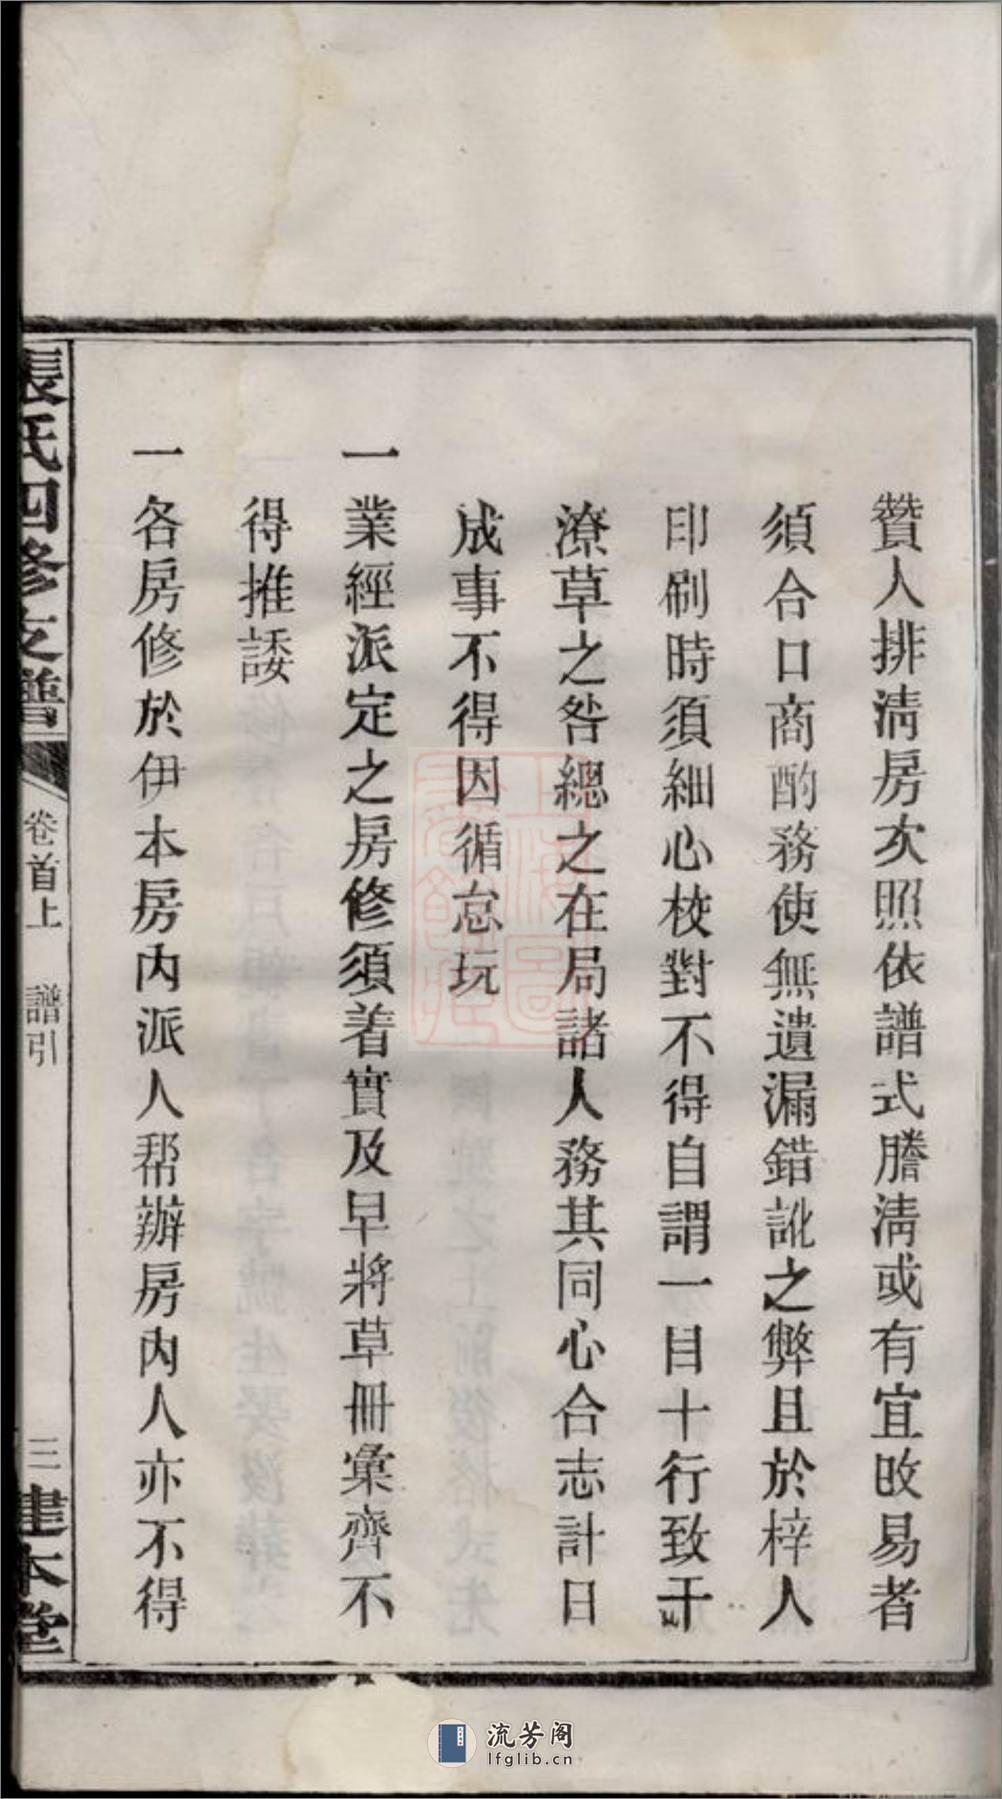 贊人排淸房次照依譜式謄淸或有宜攺易者
須合口商酌務使無遺漏錯訛之弊且於梓人
印刷時須細心校對不得自謂一目十行致干
潦草之咎總之在局諸人務其同心合志計日
成事不得因循怠玩
一業經派定之房修須着實及早將草冊彙齊不
得推諉
一各房修於伊本房內派人帮辦房內人亦不得
張氏四修支譜 卷首上 譜引 三 建本堂
流芳阁
lfglib.cn